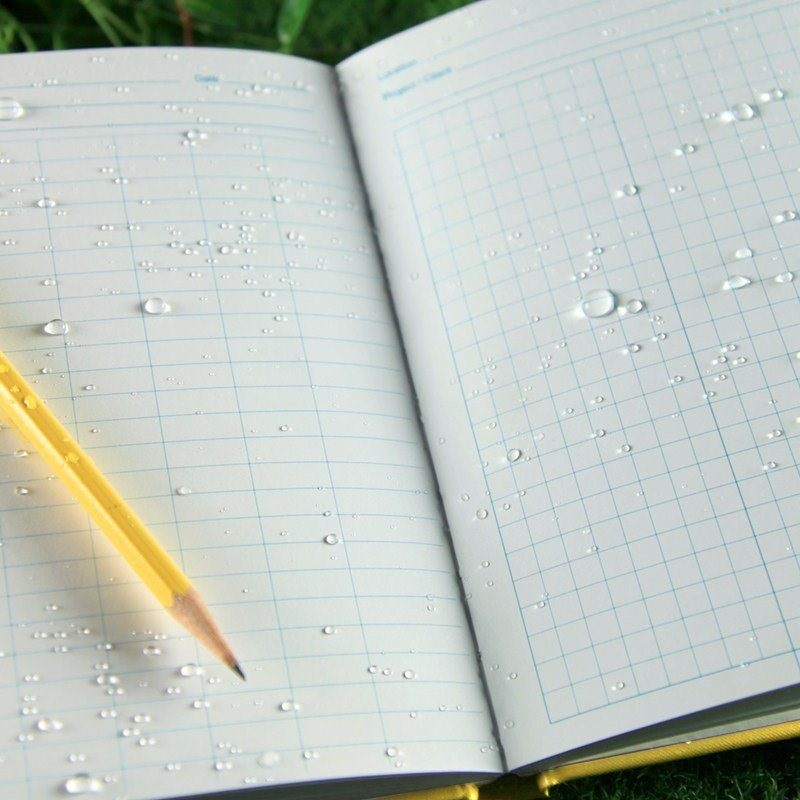 Date
Location
Project / Client